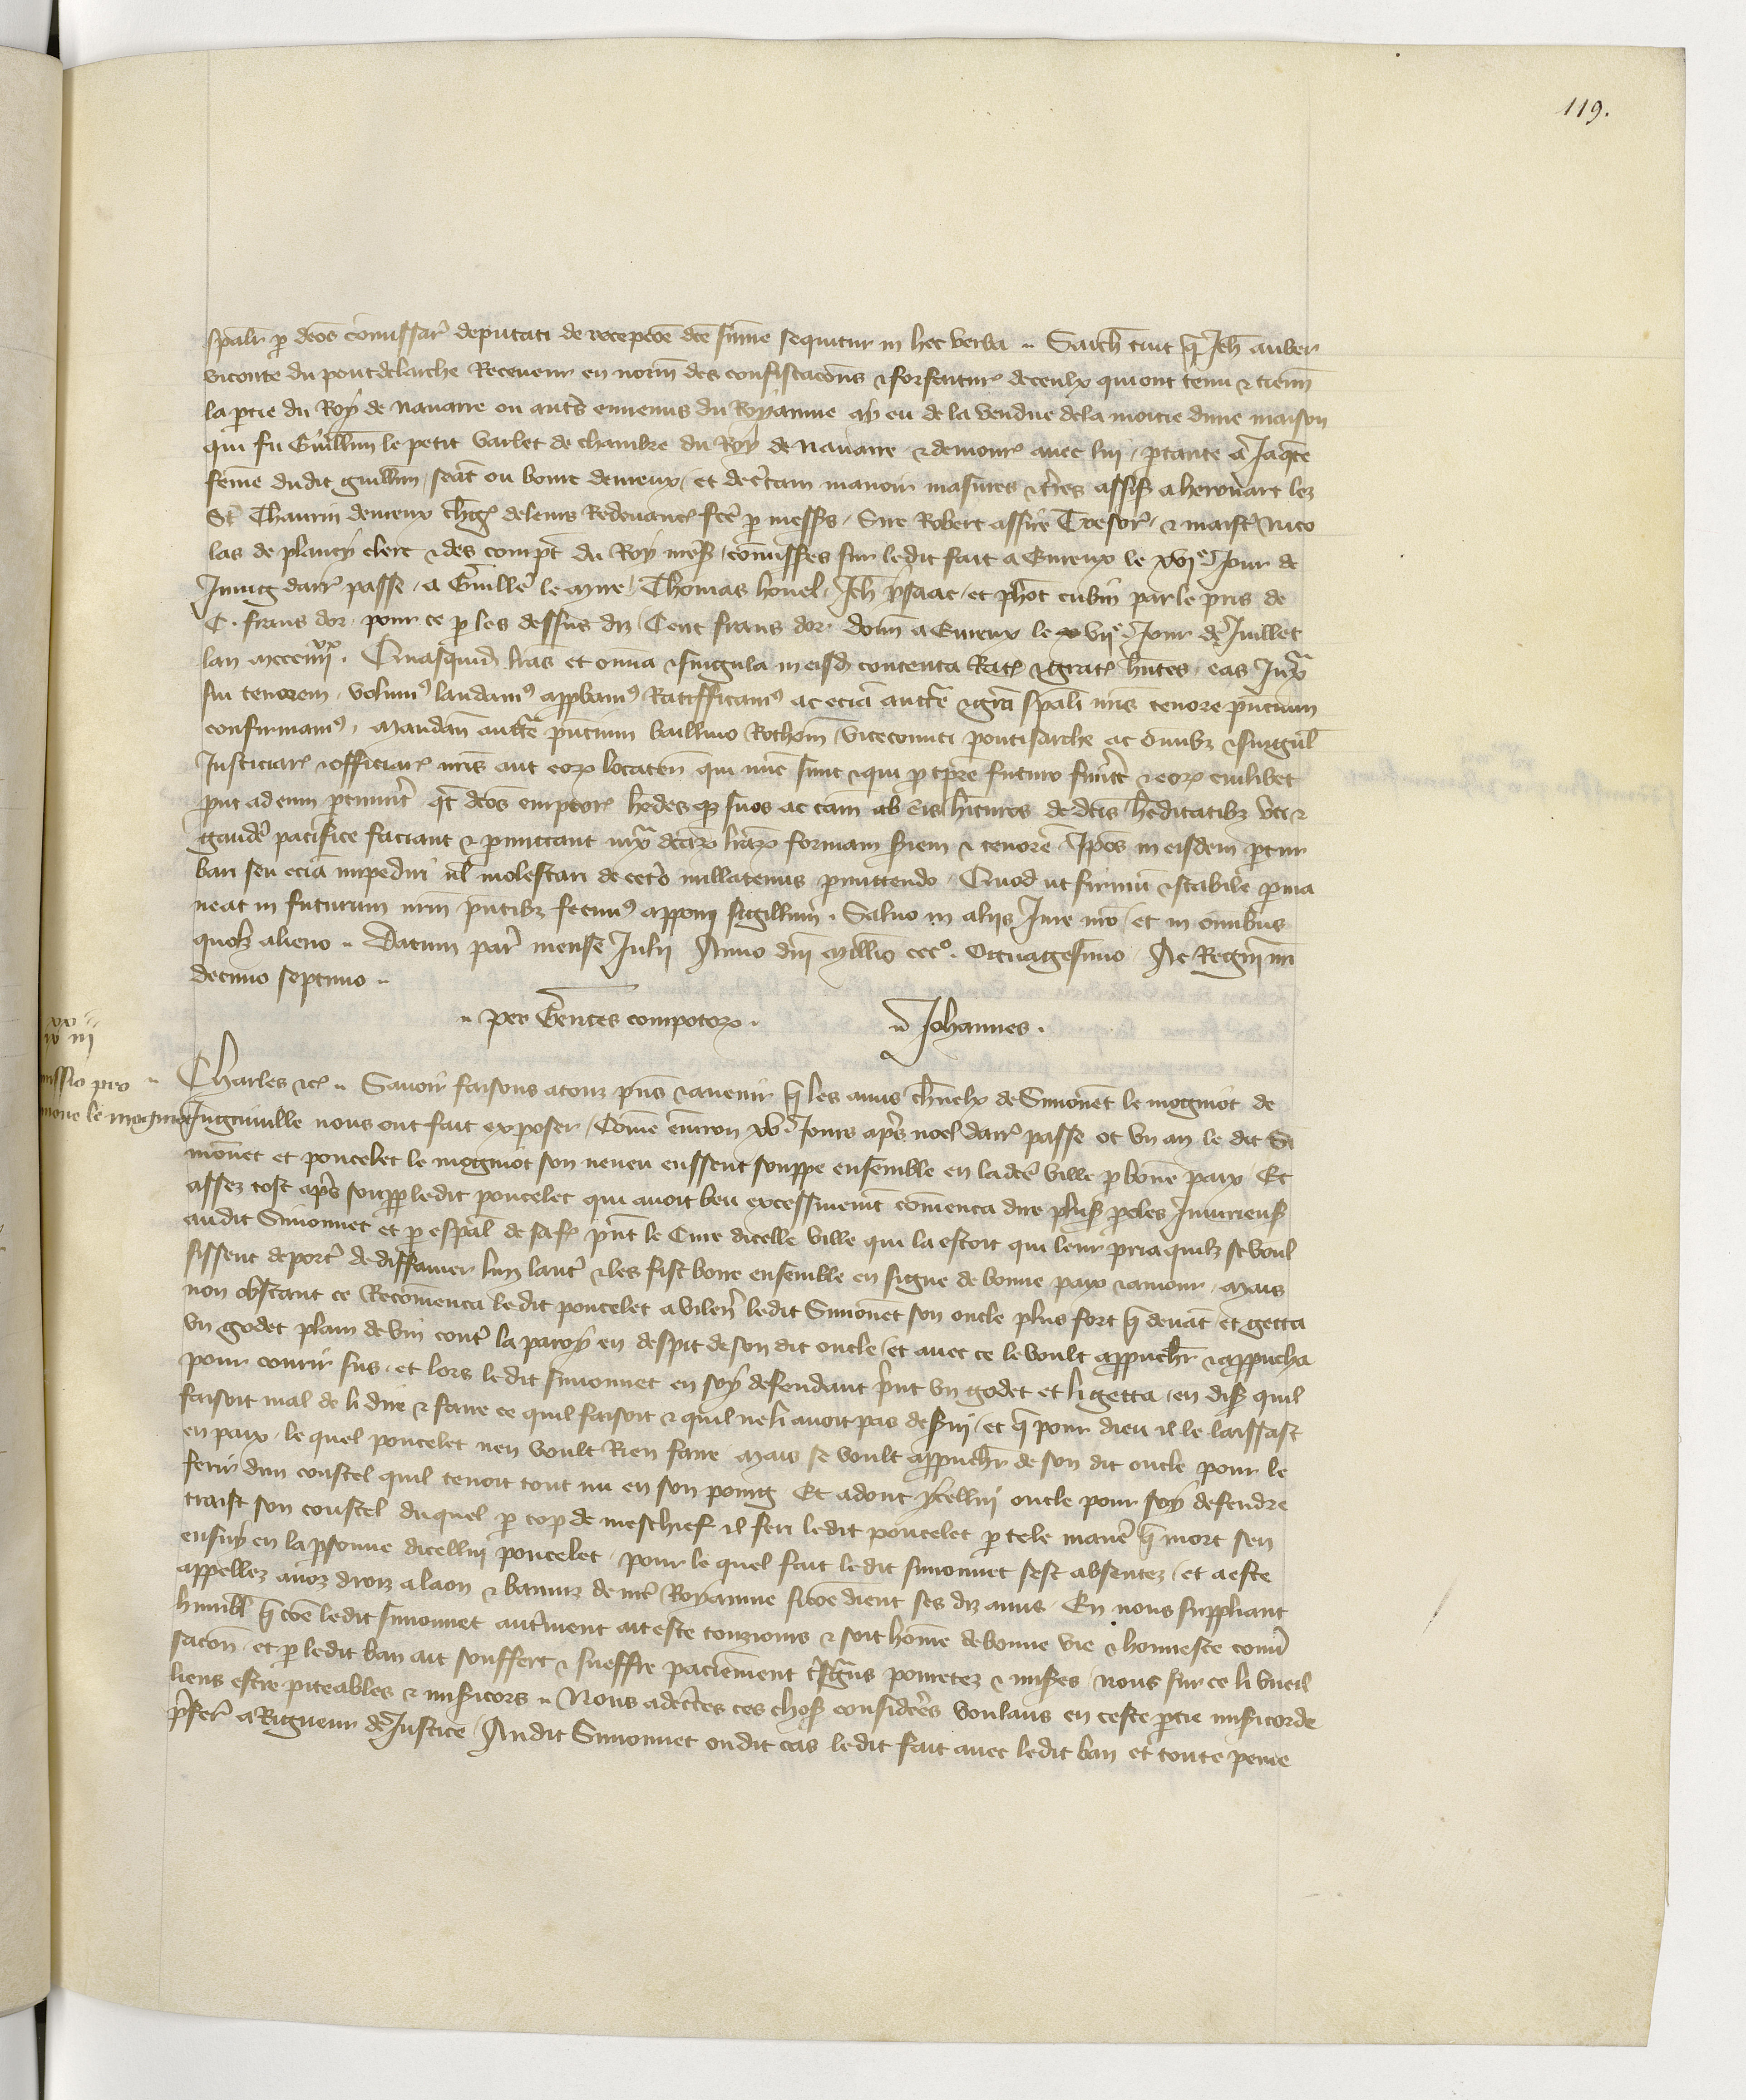 119.
spalr p dcos comissar deputati de recepcoe dce sume sequitur in hec verba .. Sach tuit q Jeh auber
viconte du pontdelarche Receveur en norm des confiscacons & forfaitur deceulx qui ont tenu & tienn
la ptie du Roy de navarre ou autrs ennemis du Royaume ay eu de la vendue dela moitie dune maison
qui fu Guillm le petit varlet de chambre du Roy de navarre & demour avec lui ptante a Jaqte
feme dudit guillm seat ou bourc devreux et de ctam manoir masures & tres assis a herouart lez
St Thaurin devreux chg de leurs Redevanc fce p messrs Sire Robert assire Tresor & maistr Nico
las de plancy clerc & des compt du Roy mess comisses sur ledit fait a Evreux le xvie Jour de
Juing darr passe a Guille le myre Thomas houel Jeh ysaac et phot cubin par le pris de
C. frans dor pour ce p les dessus diz Cent frans dor donn a Evreux le xviie Jour de Juillet
lan mccciiiixx. Quasquid lras et omia & singula in eisd contenta Rat & grat hntes eas Juxa
sui tenorem volum laudam appbam Ratifficam ac ecia auctte & gra spali nris tenore pncium
confirmam mandan auctte pncium baillivo Rothom vicecomiti pontisarche ac omibz & singul
Justiciar & officiar nris aut eorz locaten qui nuc sunt & qui p tpre futuro funt & eorz cuilibet
put ad eum ptinunt qt dcos emptor hedes qz suos ac cam ab eis hituros de dcis heditatibz uti &
gaude pacifice faciant & pmittant iuxa dcarz lrarz formam siem & tenore Ipos in eisdem ptur
bari seu ecia impediri ul molestari de ceto nullatenus pmittendo Quod ut firmu & stabile pma
neat in futurum nrm pntibz fecim apponi sigillum . Salvo in aliis Jure nro et in omibus
quolz alieno .. Datum par mense Julii Anno dni millio ccco. Octuagesimo Ac Regni nri
decimo septimo ..
.. per Gentes compotorz .
.. Johannes .
missio pro
mone le mogniot
Charles &c .. Savoir faisons a touz pns & avenir q les amis chnelx de Simonet le mogniot de
Juguiville nous ont fait exposer Come environ xv. Jours aprs noel darr passe ot un an le dit Si
monet et poncelet le mogniot son neveu eussent souppe ensemble en ladce ville p bone paix Et
assez tost aprs soupp ledit poncelet qui avoit beu excessivemt comenca dire plus poles Iniurieus
audit Simonnet et p espal de saf pnt le Cure dicelle ville qui la estoit qui leur pria quilz se voul
sissent deport de diffamer lun laut & les fist boire ensemble en signe de bonne paix & amour Mais
non obstant ce Recomenca ledit poncelet a vilen ledit Simonet son oncle plus fort q devat et getta
un godet plain de vin cont la paroy en despit de son dit oncle et avec ce le voult appuchr & appucha
pour courir sus et lors ledit simonnet en soy defendant pnt un godet et li getta en dis quil
faisoit mal de li dire & faire ce quil faisoit & quil ne li avoit pas desvi et q pour dieu il le laissast
en paix le quel poncelet nen voult Rien faire mais se voult appuchr de son dit oncle pour le
ferir dun coustel quil tenoit tout nu en son poing Et adonc ycellui oncle pour soy defendre
traist son coustel duquel p cop de meschief il feri ledit poncelet p tele mane q mort sen
ensuy en la psonne dicellui poncelet pour le quel fait ledit simonnet sest absentez et a este
appellez avoz droiz a laon & banniz de nre Royaume sicoe dient ses diz amis En nous suppliant
humbl q coe ledit simonnet autment ait este touzjours & soit home de bonne vie & honneste convr
sacon et p ledit ban ait souffert & sueffre paciement tsgans povretez & mises nous sur ce li vueil
liens estre piteables & misicors .. Nous adectes ces chos considees voulans en ceste ptie misicorde
pfer a Rigueur de Justice Audit Simonnet oudit cas ledit fait avec ledit ban et toute peine